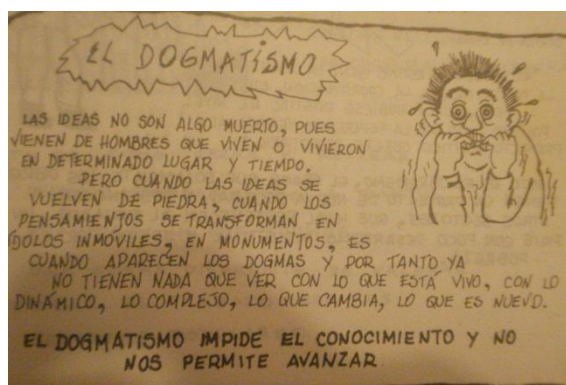 EL DOGMATISMO
LAS IDEAS NO SON ALGO MUERTO, PUES
VIENEN DE HOMBRES QUE VIVEN O VIVIERON
EN DETERMINADO LUGAR Y TIEMPO.
PERO CUANDO LAS IDEAS SE
VUELVEN DE PIEDRA, CUANDO LOS
PENSAMIENTOS SE TRANSFORMAN EN
ÍDOLOS INMÓVILES, EN MONUMENTOS, ES
CUANDO APARECEN LOS DOGMAS Y POR TANTO YA
NO TIENEN NADA QUE VER CON LO QUE ESTÁ VIVO, CON LO
DINÁMICO, LO COMPLEJO, LO QUE CAMBIA, LO QUE ES NUEVO.
EL DOGMATISMO IMPIDE EL CONOCIMIENTO Y NO
NOS PERMITE AVANZAR